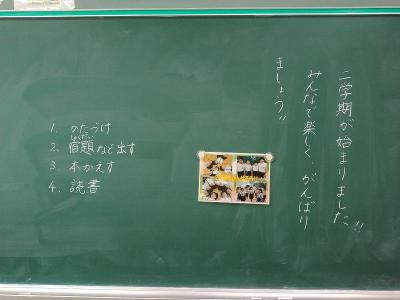 二学期が始まりました!!
みんなで楽しく、がんばり
ましょう!!
1. かたづけ
2. 宿題など出す
しゅくだい
3. 本かえす
4. 読書